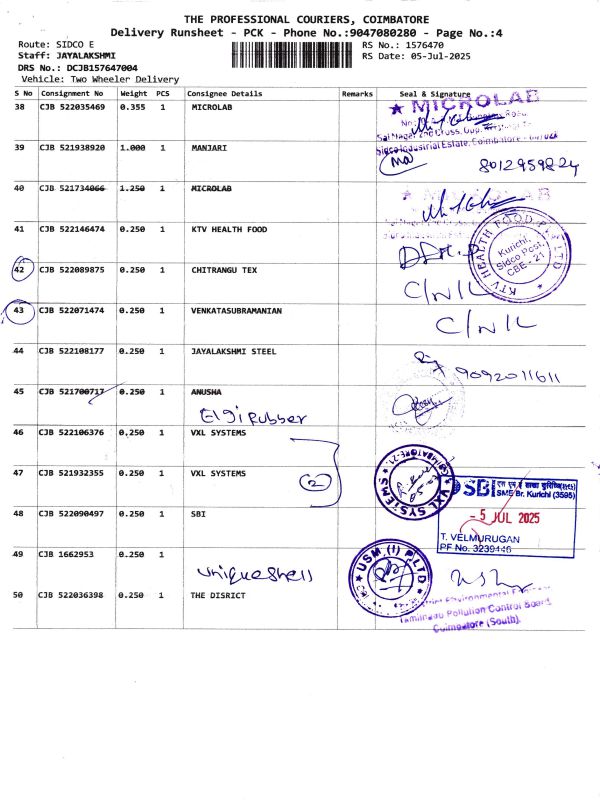 THE PROFESSIONAL COURIERS, COIMBATORE
Delivery Runsheet - PCK - Phone No.:9047080280 - Page No.:4
Route: SIDCO E
RS No.: 1576470
Staff: JAYALAKSHMI
RS Date: 05-Jul-2025
DRS No.: DCJB157647004
Vehicle: Two Wheeler Delivery
S No Consignment No Weight PCS Consignee Details Remarks Seal & Signature
38 CJB 522035469 0.355 1 MICROLAB
★ MICROLAB
Sai Nagar 2nd Cross,
Sidco Industrial Estate, Coimbatore
39 CJB 521938920 1.000 1 MANJARI
8012959824
40 CJB 521734066 1.250 1 MICROLAB
MICROLAB
41 CJB 522146474 0.250 1 KTV HEALTH FOOD
KTV HEALTH FOOD PVT LTD
Kurichi,
Sidco Post,
CBE - 21
42 CJB 522089875 0.250 1 CHITRANGU TEX
C/N/L
43 CJB 522071474 0.250 1 VENKATASUBRAMANIAN
C/N/L
44 CJB 522108177 0.250 1 JAYALAKSHMI STEEL
9092011611
45 CJB 521700717 0.250 1 ANUSHA
Elgi Rubber
46 CJB 522106376 0,250 1 VXL SYSTEMS
47 CJB 521932355 0.250 1 VXL SYSTEMS
2
VXL SYSTEMS
COIMBATORE-21
48 CJB 522090497 0.250 1 SBI
SBI
SME Br. Kurichi (3595)
- 5 JUL 2025
T. VELMURUGAN
PF No. 3239446
49 CJB 1662953 0.250 1
Uniqueshell
USM (I) P LTD
50 CJB 522036398 0.250 1 THE DISRICT
Environmental Engineer
Tamilnadu Pollution Control Board
Coimbatore (South).